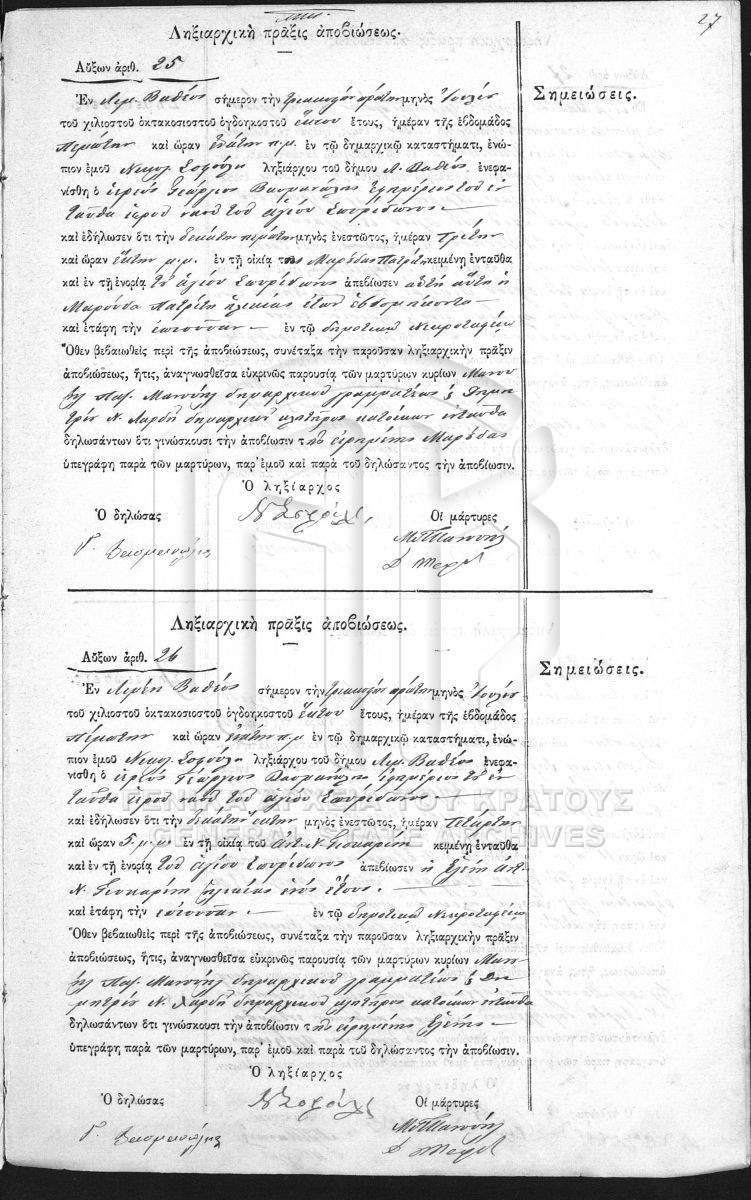 27
Ληξιαρχικὴ πρᾶξις ἀποβιώσεως.
Αὔξων ἀριθ. 25
Σημειώσεις.
Ἐν Λιμ. Βαθέος σήμερον τὴν τριακοστὴν πρώτην μηνὸς Ἰουλίου
τοῦ χιλιοστοῦ ὀκτακοσιοστοῦ ὀγδοηκοστοῦ ἕκτου ἔτους, ἡμέραν τῆς ἑβδομάδος
Πέμπτην καὶ ὥραν π.μ. ἐν τῷ δημαρχικῷ καταστήματι, ἐνώ-
πιον ἐμοῦ Νικολ. Σοφούλη ληξιάρχου τοῦ δήμου Λ. Βαθέος ἐνεφα-
νίσθη ὁ ἱερεὺς Γεώργιος ἐφημέριος τοῦ ἐν
ταῦθα ἱεροῦ ναοῦ τοῦ ἁγίου Σπυρίδωνος
καὶ ἐδήλωσεν ὅτι τὴν δεκάτην πέμπτην μηνὸς ἐνεστῶτος, ἡμέραν Τρίτην
καὶ ὥραν ἕκτην μ.μ. ἐν τῇ οἰκίᾳ τῆς κειμένῃ ἐνταῦθα
καὶ ἐν τῇ ἐνορίᾳ τοῦ ἁγίου Σπυρίδωνος ἀπεβίωσεν αὐτὴ αὕτη ἡ
ἡλικίας ἐτῶν ἑβδομήκοντα
καὶ ἐτάφη τὴν ἐπιοῦσαν ἐν τῷ δημοτικῷ Νεκροταφείῳ
Ὅθεν βεβαιωθεὶς περὶ τῆς ἀποβιώσεως, συνέταξα τὴν παροῦσαν ληξιαρχικὴν πρᾶξιν
ἀποβιώσεως, ἥτις, ἀναγνωσθεῖσα εὐκρινῶς παρουσίᾳ τῶν μαρτύρων κυρίων Μανου
ὴλ Παπ. Μανουὴλ δημαρχικοῦ γραμματέως & Δημη
τρίου Ν. δημαρχικοῦ κλητῆρος κατοίκων ἐνταῦθα
δηλωσάντων ὅτι γινώσκουσι τὴν ἀποβίωσιν τῆς εἰρημένης
ὑπεγράφη παρὰ τῶν μαρτύρων, παρ' ἐμοῦ καὶ παρὰ τοῦ δηλώσαντος τὴν ἀποβίωσιν.
Ὁ ληξίαρχος
Ὁ δηλώσας Ν Σοφούλης Οἱ μάρτυρες
Ληξιαρχικὴ πρᾶξις ἀποβιώσεως.
Αὔξων ἀριθ. 26
Σημειώσεις.
Ἐν Λιμένι Βαθέος σήμερον τὴν τριακοστὴν πρώτην μηνὸς Ἰουλίου
τοῦ χιλιοστοῦ ὀκτακοσιοστοῦ ὀγδοηκοστοῦ ἕκτου ἔτους, ἡμέραν τῆς ἑβδομάδος
Πέμπτην καὶ ὥραν π.μ. ἐν τῷ δημαρχικῷ καταστήματι, ἐνώ-
πιον ἐμοῦ Νικολ. Σοφούλη ληξιάρχου τοῦ δήμου Λιμ. Βαθέος ἐνεφα-
νίσθη ὁ ἱερεὺς Γεώργιος ἐφημέριος τοῦ ἐν
ταῦθα ἱεροῦ ναοῦ τοῦ ἁγίου Σπυρίδωνος
ΓΕΝΙΚΑ ΑΡΧΕΙΑ ΤΟΥ ΚΡΑΤΟΥΣ
GENERAL STATE ARCHIVES
καὶ ἐδήλωσεν ὅτι τὴν δεκάτην ἕκτην μηνὸς ἐνεστῶτος, ἡμέραν Τετάρτην
καὶ ὥραν 5 μ.μ. ἐν τῇ οἰκίᾳ τοῦ Ἀντ. Ν. κειμένῃ ἐνταῦθα
καὶ ἐν τῇ ἐνορίᾳ τοῦ ἁγίου Σπυρίδωνος ἀπεβίωσεν ἡ Ἑλένη Ἀντ.
Ν. ἡλικίας ἑνὸς ἔτους.
καὶ ἐτάφη τὴν ἐπιοῦσαν ἐν τῷ δημοτικῷ Νεκροταφείῳ
Ὅθεν βεβαιωθεὶς περὶ τῆς ἀποβιώσεως, συνέταξα τὴν παροῦσαν ληξιαρχικὴν πρᾶξιν
ἀποβιώσεως, ἥτις, ἀναγνωσθεῖσα εὐκρινῶς παρουσίᾳ τῶν μαρτύρων κυρίων Μανου
ὴλ Παπ. Μανουὴλ δημαρχικοῦ γραμματέως & Δη
μητρίου Ν. δημαρχικοῦ κλητῆρος κατοίκων ἐνταῦθα
δηλωσάντων ὅτι γινώσκουσι τὴν ἀποβίωσιν τῆς εἰρημένης Ἑλένης
ὑπεγράφη παρὰ τῶν μαρτύρων, παρ' ἐμοῦ καὶ παρὰ τοῦ δηλώσαντος τὴν ἀποβίωσιν.
Ὁ ληξίαρχος
Ὁ δηλώσας Ν Σοφούλης Οἱ μάρτυρες